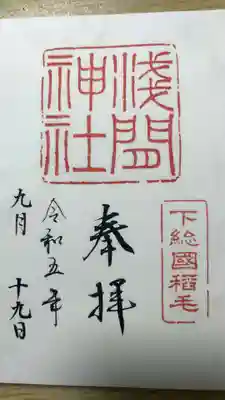 浅間
神社
下総國稲毛
奉拝
令和五年
九月
十九日